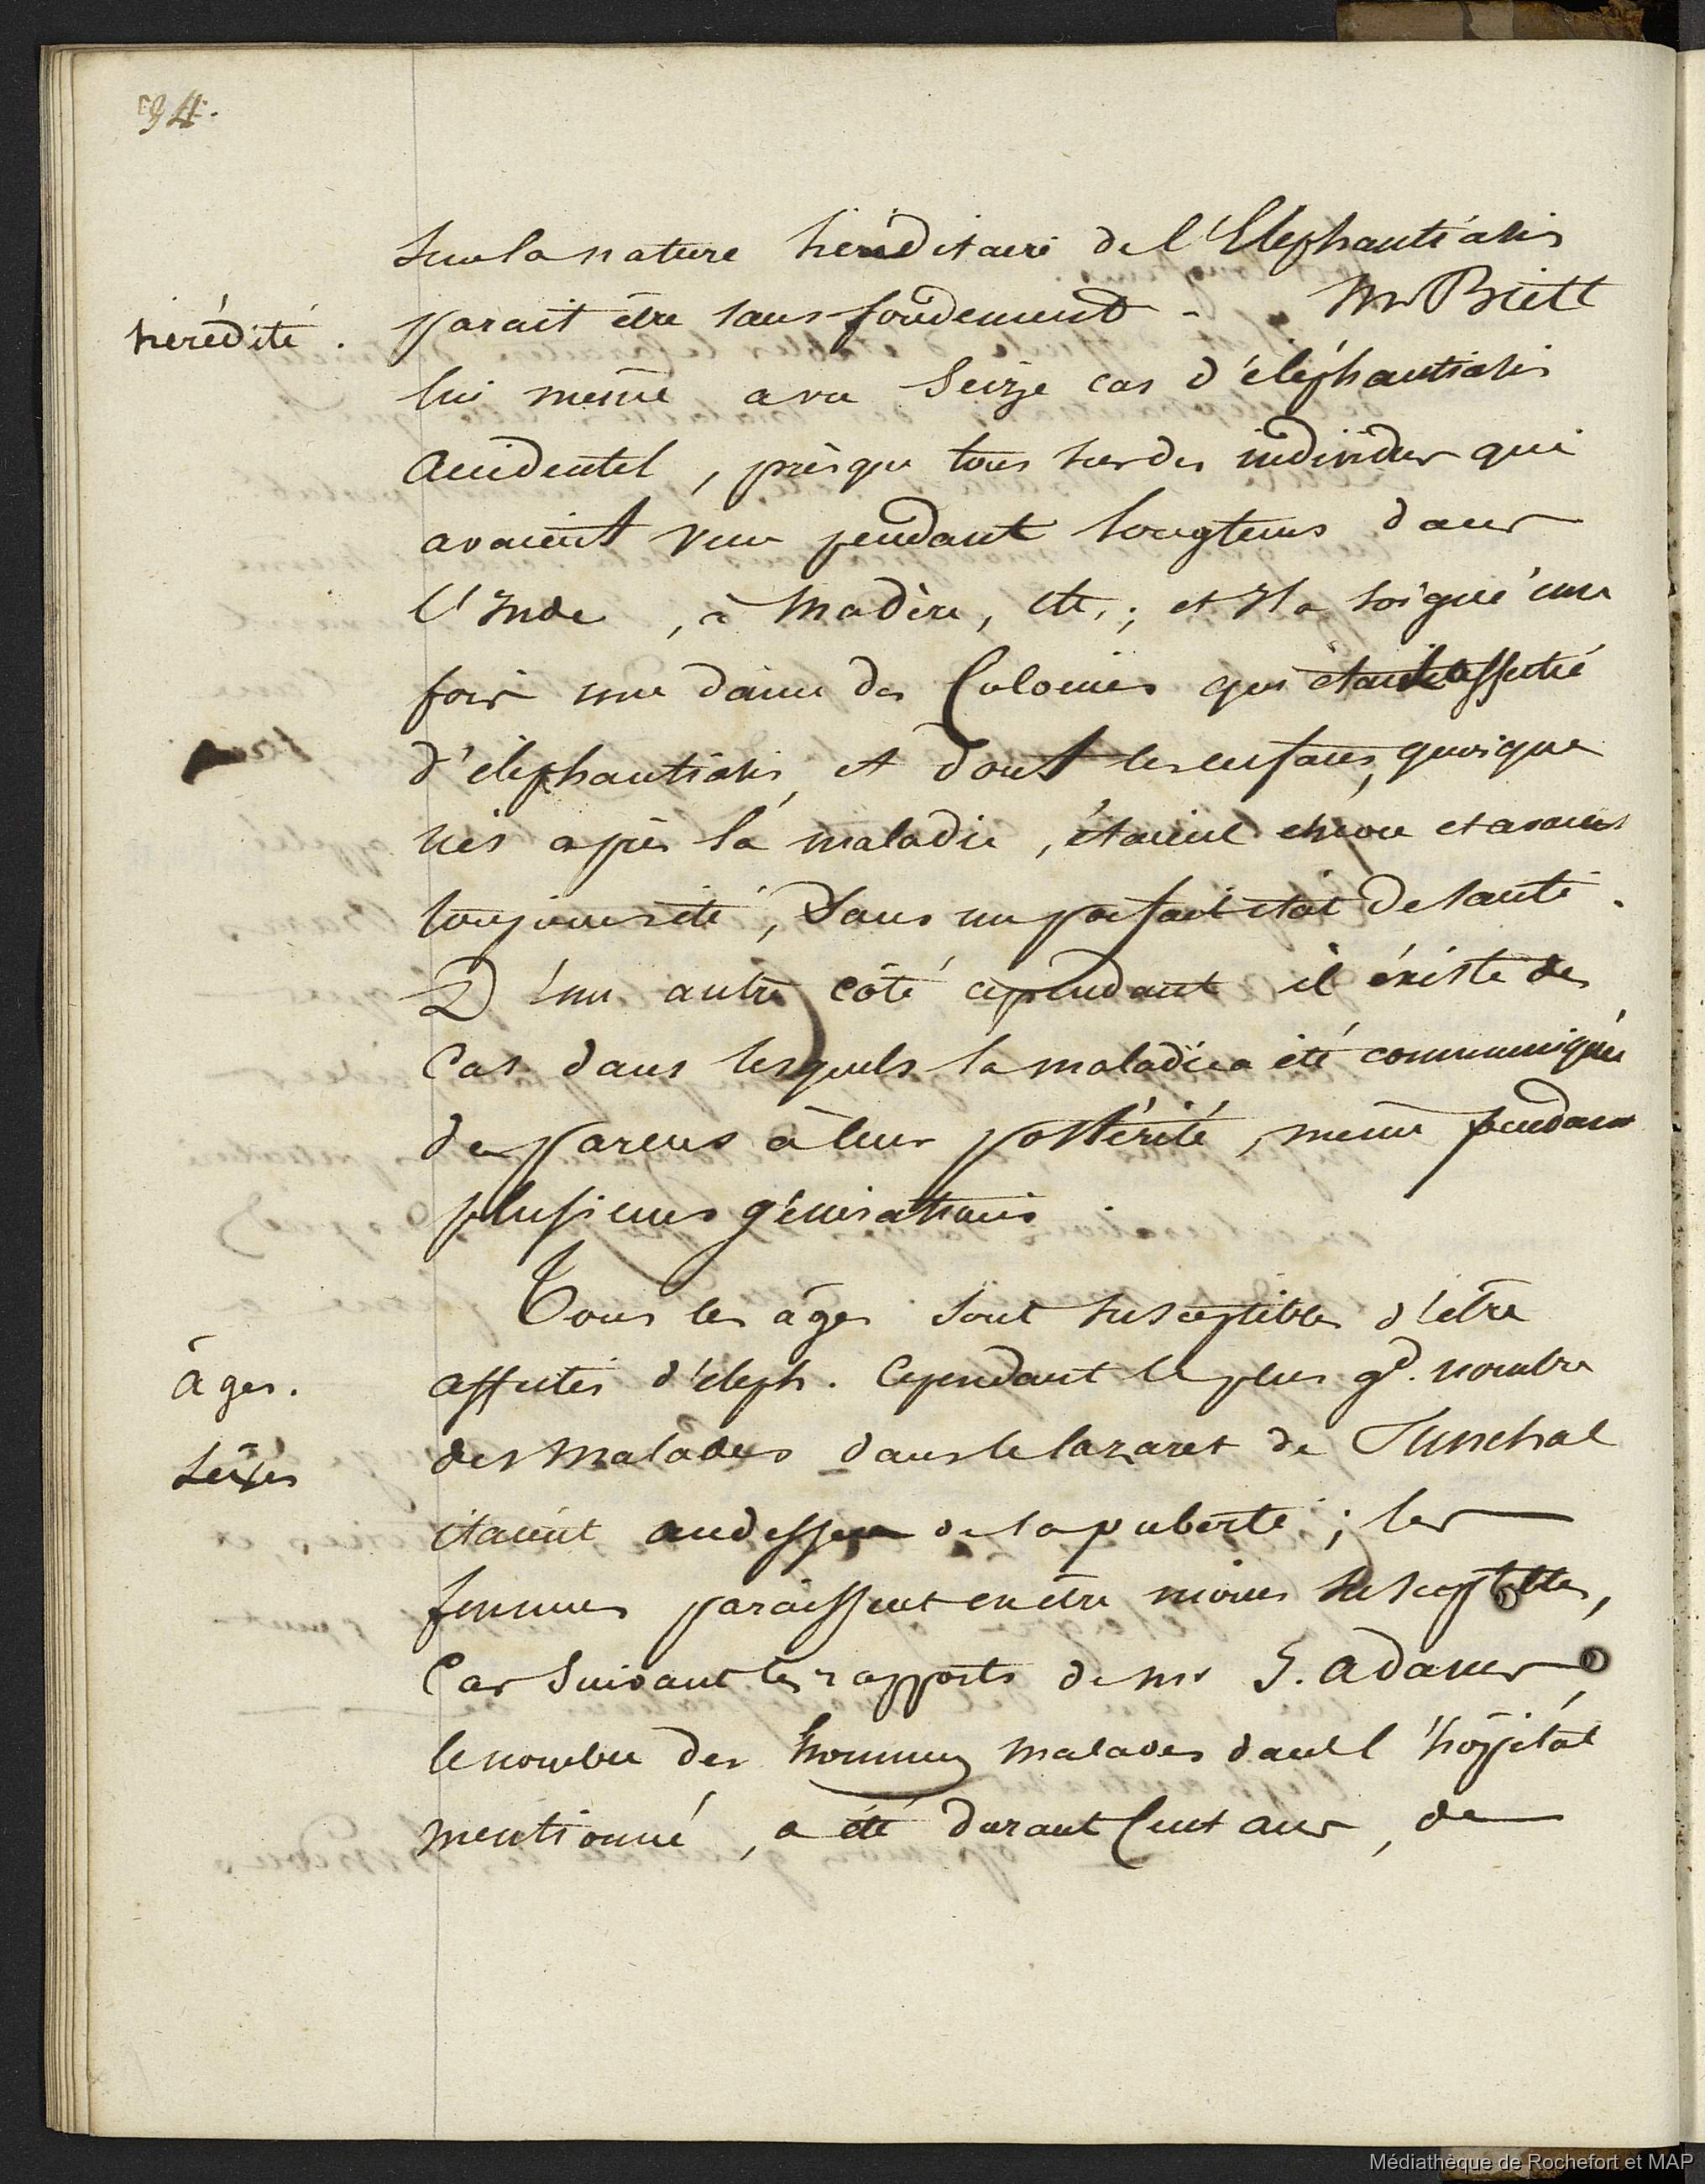 34.
sur la nature héréditaire de l'Elephantiasis
hérédité.
parait être sans fondement - Mr Biett
lui même a vu Seize cas d'éléphantiasis
accidentel, presque tous sur des individus qui
avaient vécu pendant longtems dans
l'Inde, à Madère, etc.; et Il a soigné une
fois une dame des Colonies qui étaient affectée
d'éléphantiasis, et dont les enfans, quoique
nés après la maladie, étaient encore et avaient
toujours été, dans un parfait état de santé.
D'un autre côté cependant il éxiste des
Cas dans lesquels la maladie a été communiquée
de parens à leur postérité, même pendant
plusieurs générations.
Tous les âges sont susceptibles d'être
âges.
affectés d'éleph. Cependant le plus gd. nombre
sexes
des malades dans le lazaret de Funchal
étaient audessus de la puberté; les
femmes paraissent en être moins susceptibles,
Car suivant les rapports de Mr J. Adams,
le nombre des hommes malades dans l'hôpital
mentionné, a été durant Cent ans, de
Médiathèque de Rochefort et MAP